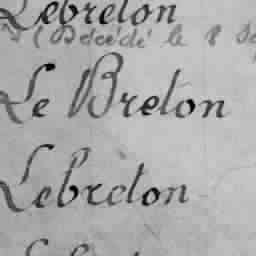 Lebreton
(Décédé le 8
Le Breton
Lebreton